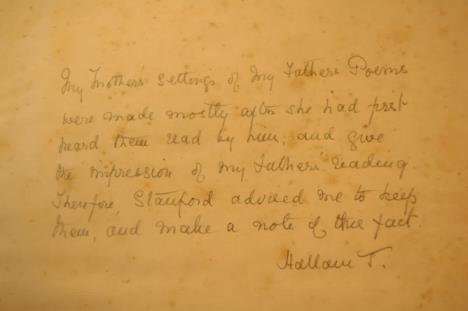 My Mother's Settings of My Father's Poems
were made mostly after she had first
heard them read by him, and give
the impression of my Father's reading
Therefore Stanford advised me to keep
them, and make a note of this fact
Hallam T.